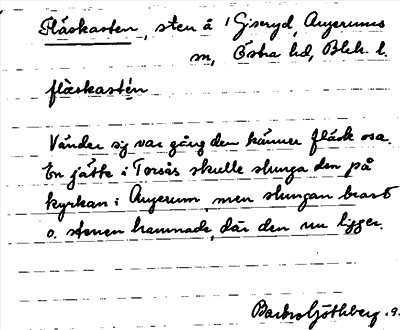 Fläskasten, sten å 1 Giseryd, Augerums
sn, Östra hd, Blek. l.
flæskasten
Vänder sig var gång den känner fläsk osa.
En jätte i Torsås skulle slunga den på
kyrkan i Augerum, men slungan brast
o. stenen hamnade, där den nu ligger.
Barbro Göthberg